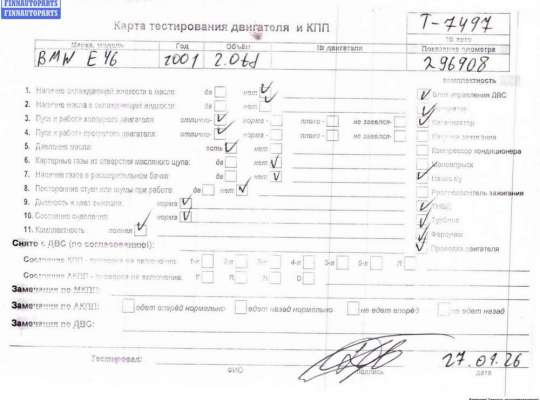 FINNAUTOPARTS
FINNAUTOPARTS
Карта тестирования двигателя и КПП
T-7497
№ лото
Марка, модель Год Объём № двигателя Показание одометра
BMW E46 2001 2.0td 296908
комплектность
1. Наличие охлаждающей жидкости в масле: да нет
Блок управления ДВС
2. Наличие масла в охлаждающей жидкости: да нет
3. Пуск и работа холодного двигателя: отлично- норма - плохо - не завелся-
Генератор
4. Пуск и работа прогретого двигателя: отлично- норма - плохо - не завелся-
5. Давление масла: есть нет
Компрессор кондиционера
6. Картерные газы из отверстия масляного щупа: да нет
7. Наличие газов в расширительном бачке: да нет
8. Посторонние стуки или шумы при работе: да нет
Распределитель зажигания
9. Дымность и цвет выхлопа: норма
ТНВД
10. Состояние сцепления: норма
Турбина
11. Комплектность: полная
Форсунки
Снято с ДВС (по согласованию):
Проводка двигателя
Состояние КПП - проверка на включение: 1-я 2-я 3-я 4-я 5-я 6-я R
Состояние АКПП - проверка на включение: P R N D
Замечания по МКПП:
Замечания по АКПП: едет вперёд нормально едет назад нормально не едет вперёд не едет назад
Замечания по ДВС:
Тестировал: 27.01.26
ФИО подпись